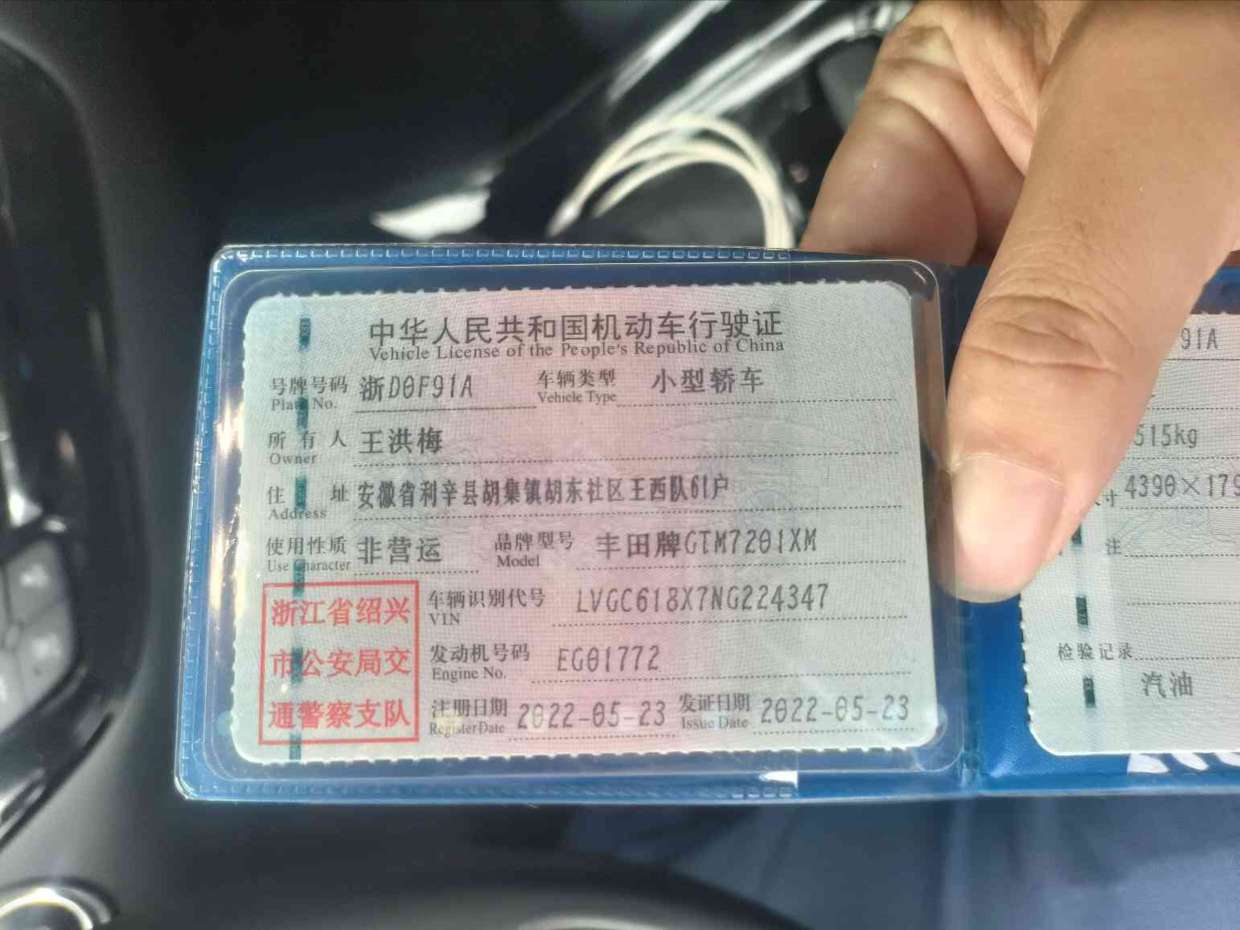 中华人民共和国机动车行驶证
Vehicle License of the People's Republic of China
号牌号码 浙D0F91A 车辆类型 小型轿车
Plate No. Vehicle Type
所有人 王洪梅
Owner
住址 安徽省利辛县胡集镇胡东社区王西队61户
Address
使用性质 非营运 品牌型号 丰田牌GTM7201XM
Use Character Model
浙江省绍兴
市公安局交
通警察支队
车辆识别代号 LVGC618X7NG224347
VIN
发动机号码 EG01772
Engine No.
注册日期 2022-05-23 发证日期 2022-05-23
Register Date Issue Date
91A
515kg
寸 4390×179
注
检验记录
汽油